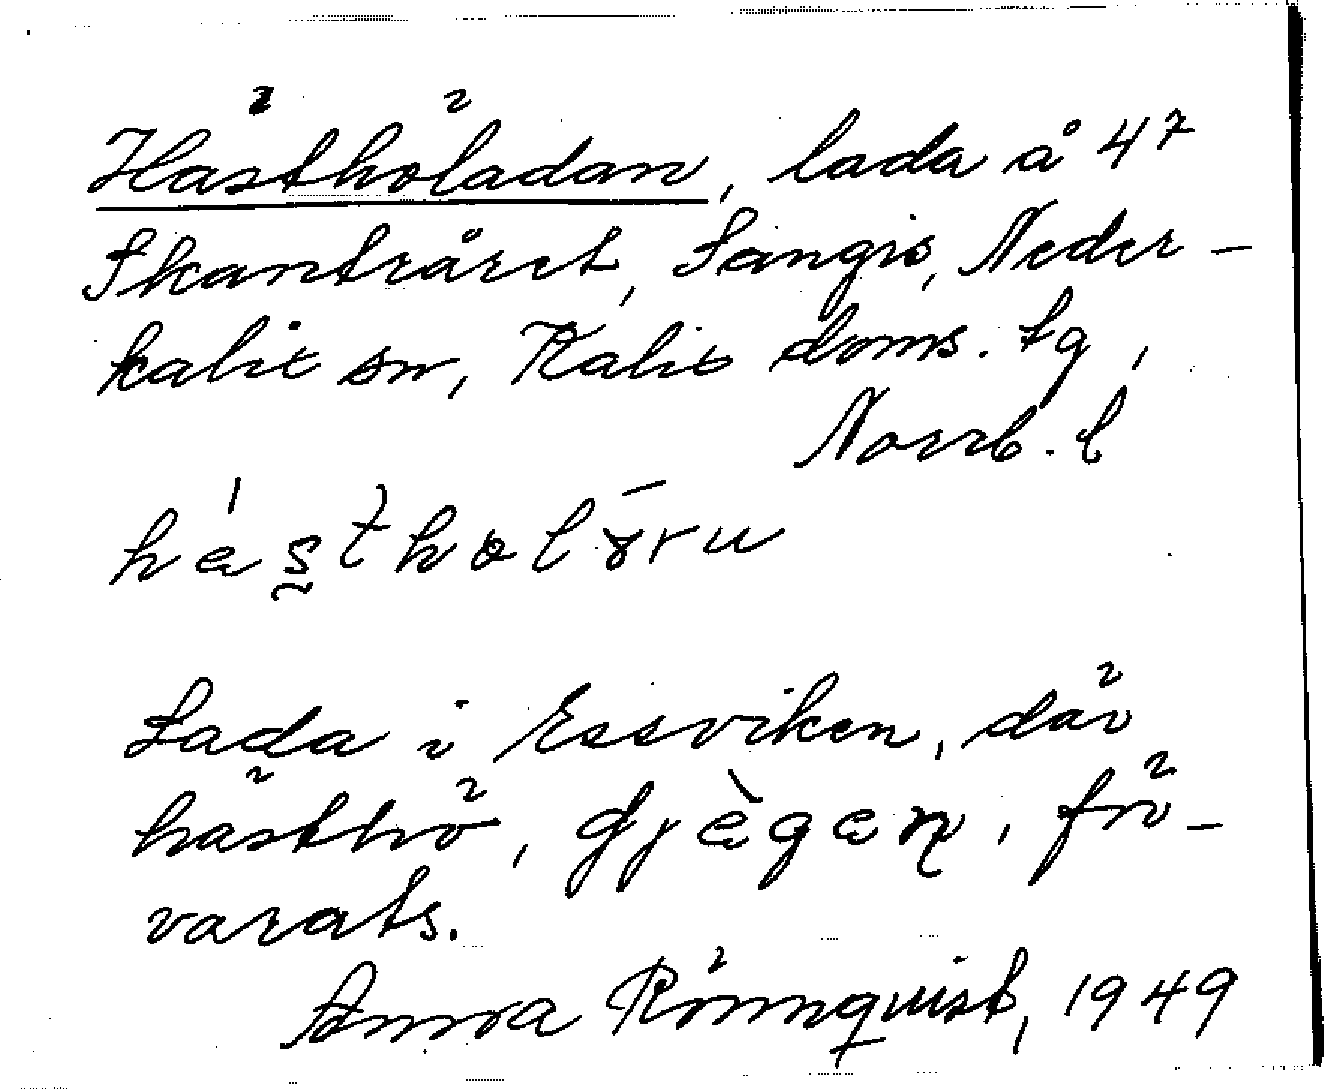 Hästhöladan, lada å 47
Skantråret, Sangis, Neder-
kalix sn, Kalix doms. tg,
Norrb. l
Lada i Essviken, där
hästhö, , för-
varats.
Anna Rönnquist, 1949